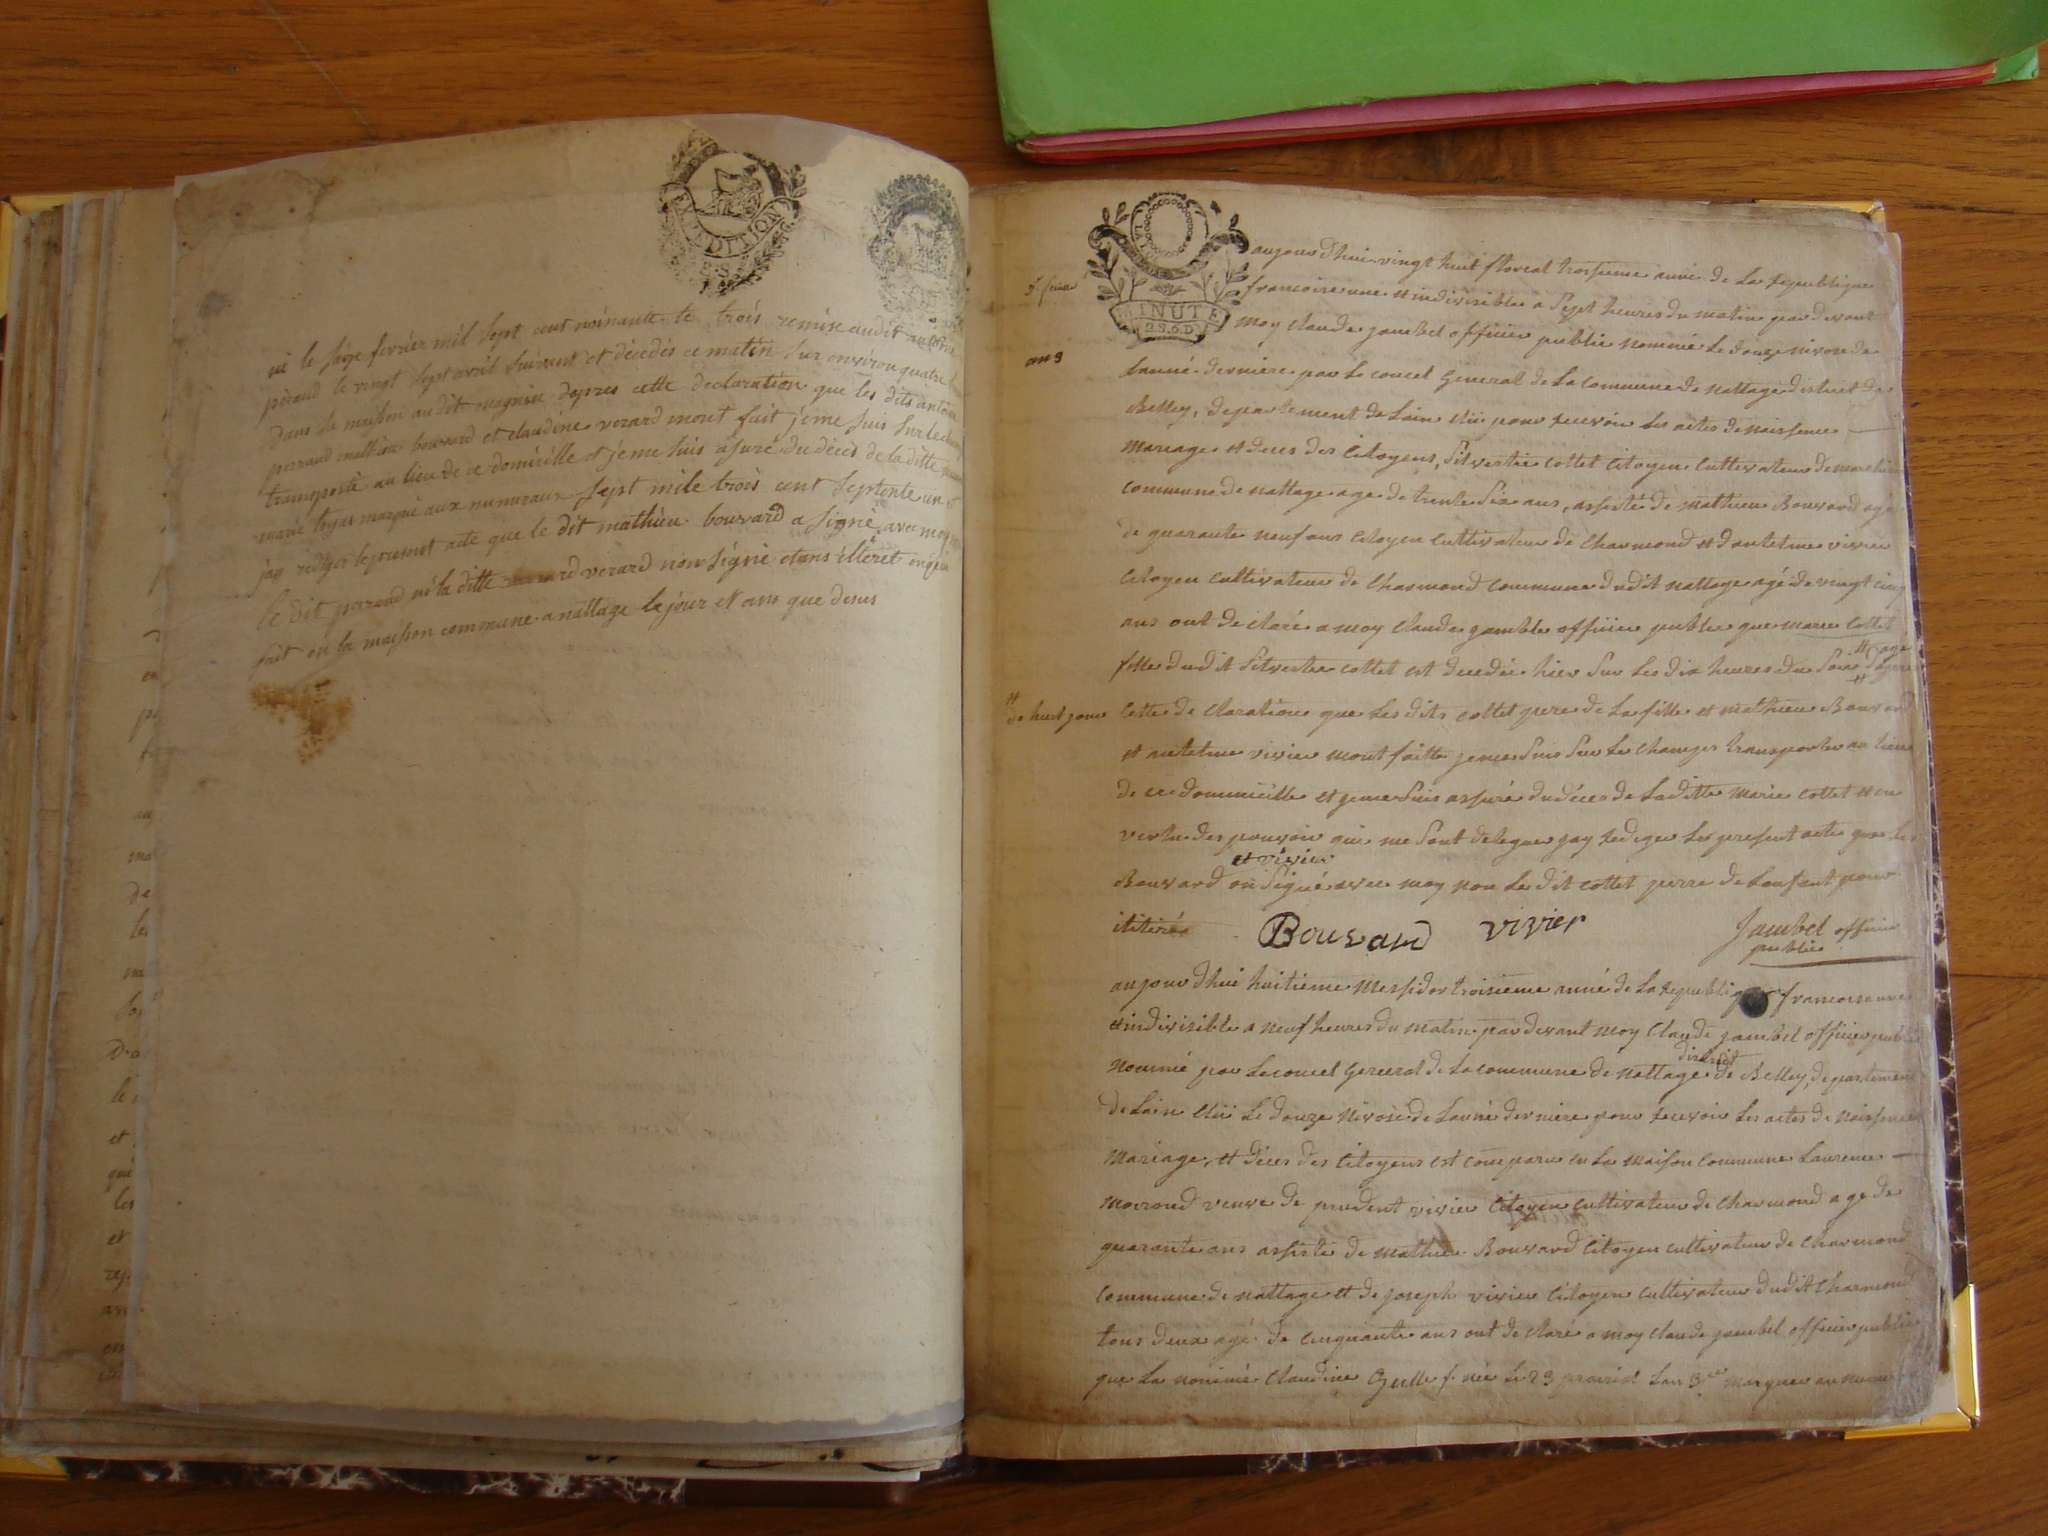 EXPEDITION
2 S.
né le seize fevrier mil sept cent noinante te trois remise audit
peraud le vingt sept avril suivant et décédés ce matin sur environ quatre
dans la maison audit magnin dapres cette declaration que les dits antoine
perraud mathieu bouvard et claudine verard mont fait j'eme suis sur le
transporté au lieu de ce domicille et j'eme suis assuré du décés de la ditte
marie marqué aux numeraux sept mile trois cent septente un
jay rediger lepresent acte que le dit mathieu bouvard a signé avec moy
le dit peraud né la ditte verard non signé etans illeret
fait en la maisson commune a nattage le jour et ans que desus
MINUTE
2 S. 6 D
an 3
aujourdhui vingt huit floreal troisieme anné de La republique
francoise une et indivisible a sept heures du matin par devant
moy claude jambel officier public nommé Le douze nivose de
Lanné derniere par Le concel General de La Commune de nattage district de
Belley, departement de Lain élü pour recevoir Les actes de naissence
mariage et deces des Citoyens, Silvestre collet Citoyen Cultivateur de
commune de nattage age de trente six ans, assisté de mathieu Bouvard agé
de quarante neuf ans Citoyen cultivateur de Charmond et dantelme vivier
Citoyen cultivateur de Charmond commune dudit nattage agé de vingt cinq
ans ont declaré a moy Claude jambel officier public que marie Collet
fille dudit Silvestre collet est decedée hier sur Les dix heures du soir
age
de huit jour
Cette declaration que Les dits collet pere de La fille et mathieu Bouvard
et antelme vivier mont faitte jeme suis sur Le Champs transporter au lieu
de ce dommicille et jeme suis assuré du déces de Laditte marie collet et en
vertu des pouvoir qui me sont deleguer jay rediger Le present acte que Le
et vivier
Bouvard on signé avec moy non Le dit collet perre de Lenfant pour
Bouvard vivier Jambel officier
public
aujourdhui huitieme messidor troisieme anné de La republique francoise une
et indivisible a neuf heures du matin par devant moy Claude jambel officier public
district
nommé par Le concel General de La commune de nattage de Belley, departement
de Lain élü Le douze nivose de Lanné derniere pour recevoir Les actes de naissence
mariage, et déces des Citoyens est comparu en La maison commune Laurence
moirond veuve de prudent vivier Citoyen cultivateur de Charmond age de
quarante ans assisté de mathieu Bouvard Citoyen cultivateur de Charmond
Commune de nattage et de joseph vivier Citoyen cultivateur dudit Charmond
tous deux agé de cinquante ans ont declaré a moy Claude jambel officier public
que La nommé Claudine née Le 23 prairial Lan 3 marquer au numero